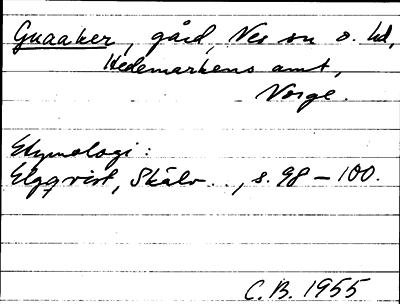 Gnaaker, gård, Nes sn o. hd,
Hedemarkens amt,
Norge.
Etymologi:
Elgqvist, Skälv..., s. 98 – 100.
C.B. 1955